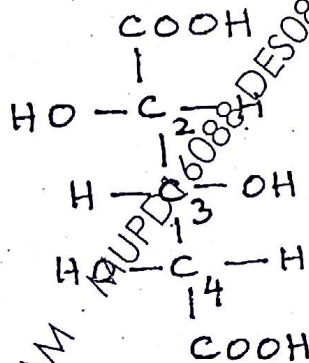 COOH
HO — C — H
2
H — C — OH
3
HO — C — H
4
COOH
MUPD 6088 DES08
AM